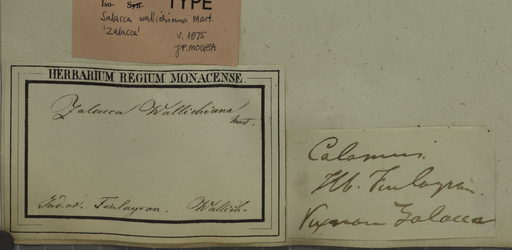 Iso- Syn. TYPE
Salacca wallichiana Mart.
'Zalacca'
V. 1975
J.P. MOGEA
HERBARIUM REGIUM MONACENSE.
Zalacca Wallichiana
Mart.
Ind. or. Finlayson. Wallich.
Calamus.
Hb. Finlayson.
Zalacca